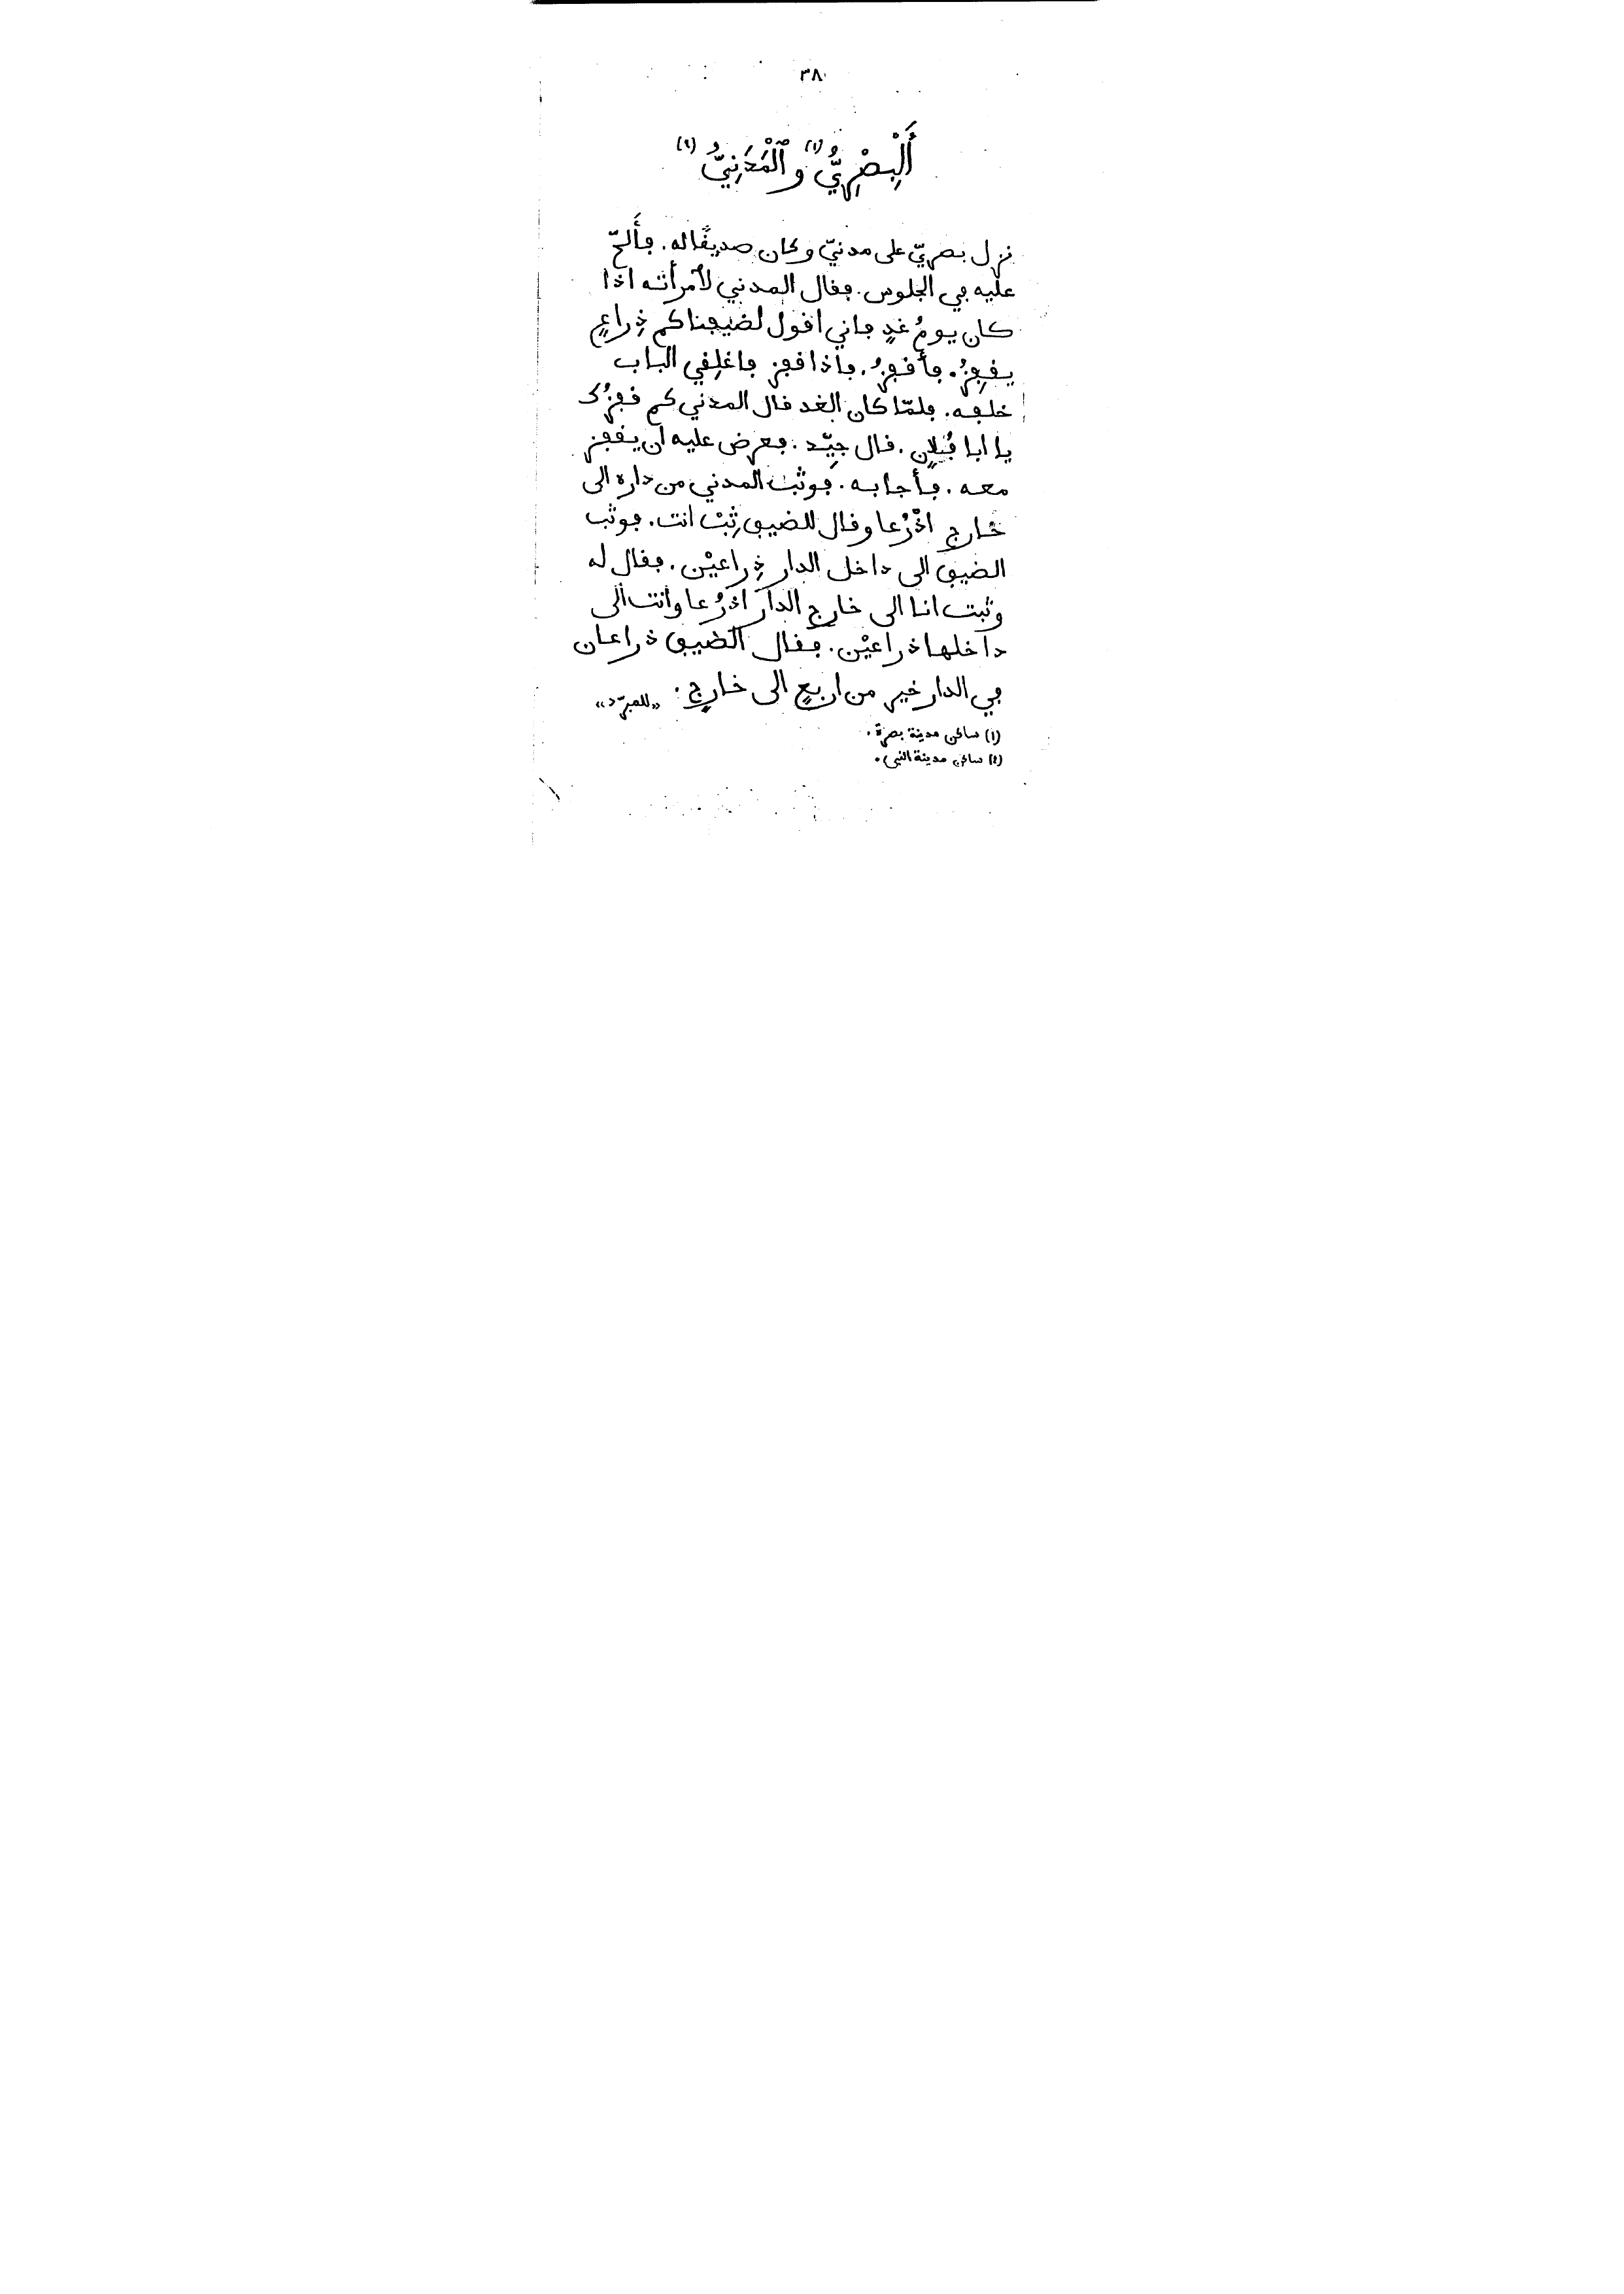 ٣٨
أَلْبِصْرِيُّ (١) و ٱلْمَدَنِيُّ (٢)
نزل بصريّ على مدنيّ وكان صديقًا له. فأَلحّ
عليه في الجلوس. فقال المدني لاُمرأته اذا
كان يومُ غدٍ فاني اقول لضيفنا كم ذِراعٍ
يقفِزُ. فأقفِزُ. فاذا قفز فاغلِقي الباب
خلفه. فلمّا كان الغد قال المدني كم قفزُك
يا ابا فُلانٍ. قال جيِّد. فعرض عليه ان يقفز
معه. فأجابه. فوثب المدني من داره الى
خارج اذْرُعا وقال للضيف ثِبْ انت. فوثب
الضيف الى داخل الدار ذِراعيْن. فقال له
وثبت انا الى خارج الدار اذرُعا وانت الى
داخلها ذراعيْن. فقال الضيف ذراعان
في الدار خير من اربعٍ الى خارجٍ. «للمبرّد»
(١) ساكن مدينة بصرة.
(٢) ساكن مدينة النبي.